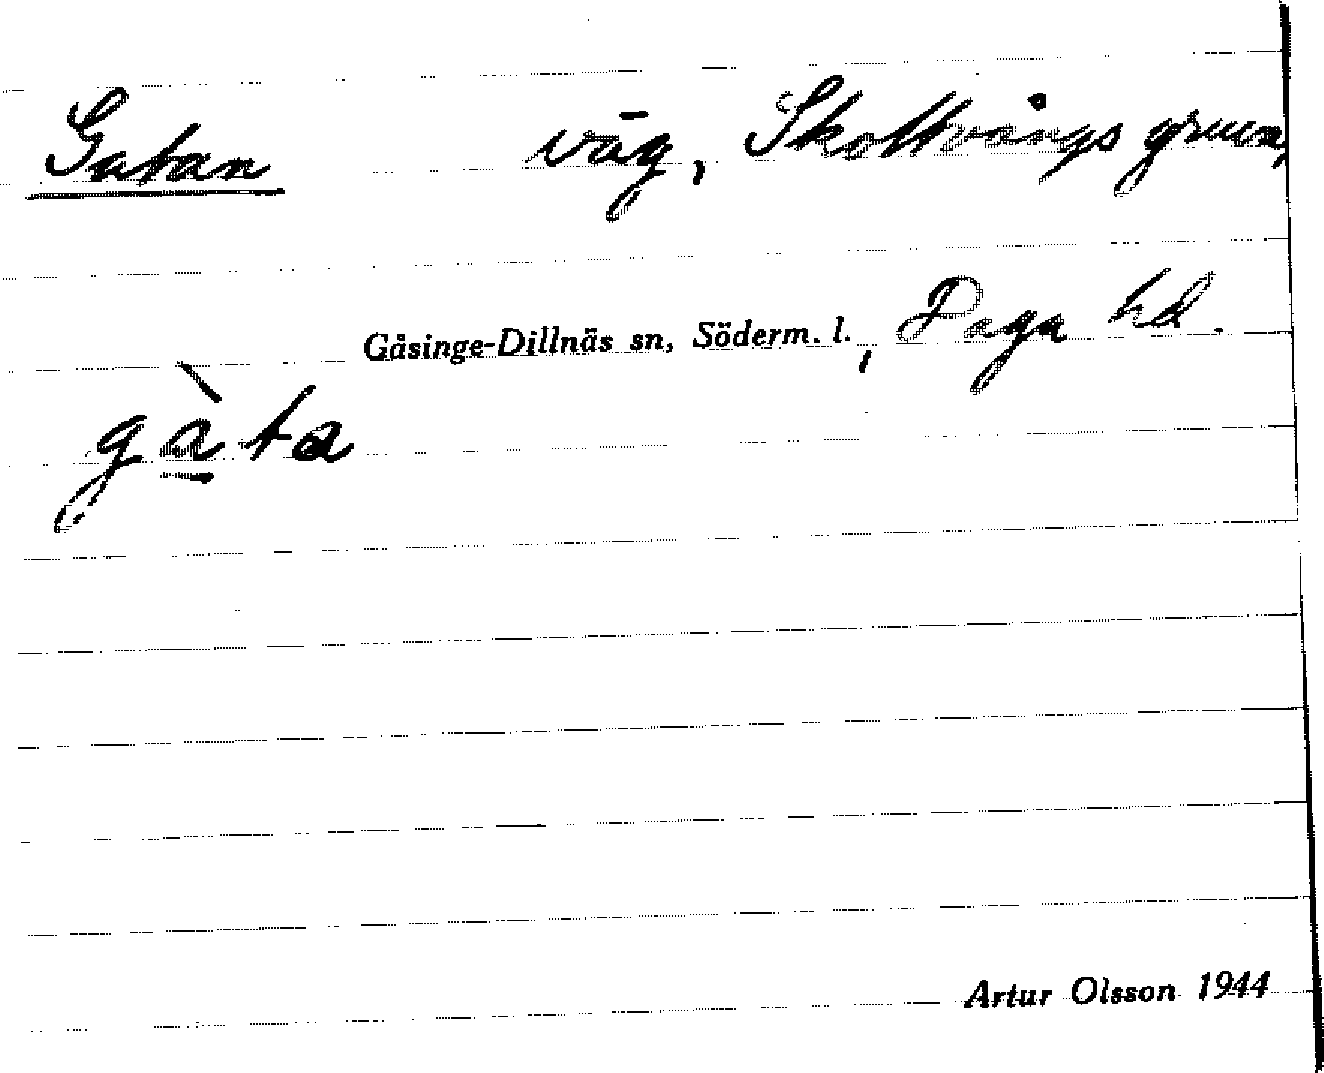 Gatan väg, Skottvångs gruva,
Gåsinge-Dillnäs sn, Söderm. l., Daga hd.
gà̱ta
Artur Olsson 1944